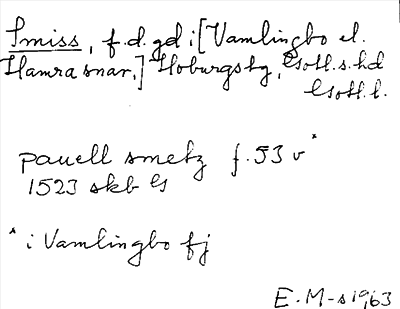 Smiss, f.d.gd i [Vamlingbo el.
Hamra snar,] Hoburgsbg, Gotl.s.hd
Gotl.l.
pauell smetz f.53 v *
1523 skb G
* i Vamlingbo fj
E.M-s 1963